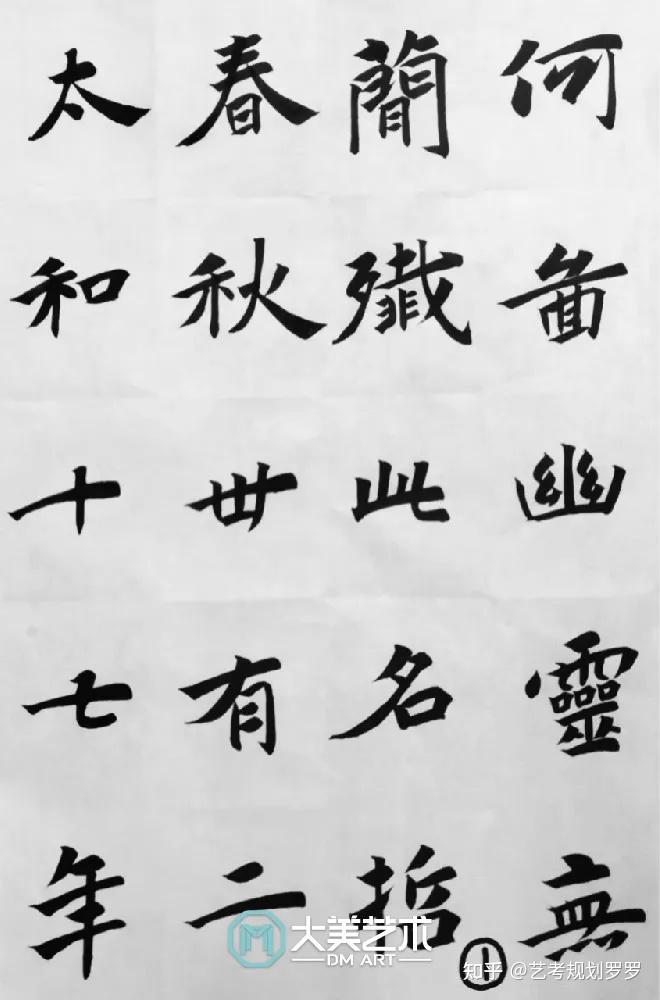 何啚幽靈無
簡殲此名哲
春秋丗有二
太和十七年
大美艺术
DM ART
①
知乎 @艺考规划罗罗